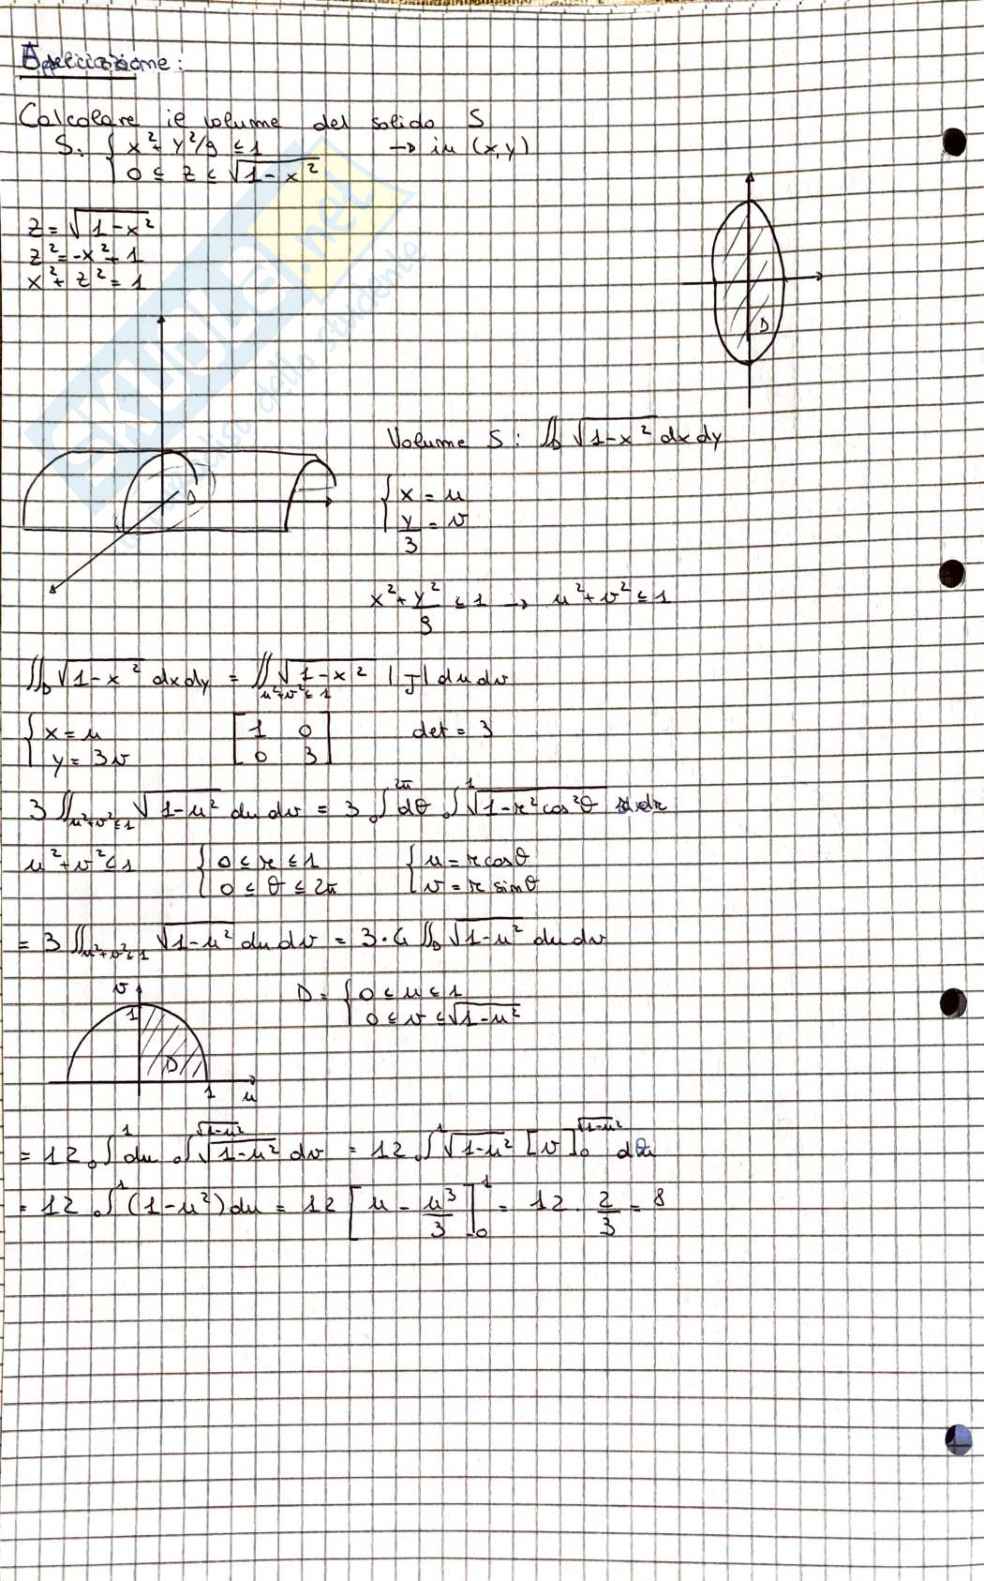 Applicazione:
Calcolare il volume del solido S
S: { x² + y²/9 ≤ 1 → in (x,y)
0 ≤ z ≤ √1-x²
z = √1-x²
z² = -x² + 1
x² + z² = 1
D
Volume S: ∬_D √1-x² dxdy
D
{ x = u
y/3 = v
x² + y²/9 ≤ 1 → u² + v² ≤ 1
∬_D √1-x² dxdy = ∬_{u²+v²≤1} √1-x² |J| du dv
{ x = u [1 0 det = 3
y = 3v 0 3]
3 ∬_{u²+v²≤1} √1-u² du dv = 3 ∫₀^{2π} dθ ∫₀¹ √1-r²cos²θ r dr
u² + v² ≤ 1 { 0 ≤ r ≤ 1 { u = r cosθ
0 ≤ θ ≤ 2π v = r sinθ
= 3 ∬_{u²+v²≤1} √1-u² du dv = 3·4 ∬_D √1-u² du dv
v
1
D
1 u
D = { 0 ≤ u ≤ 1
0 ≤ v ≤ √1-u²
= 12 ∫₀¹ du ∫₀^{√1-u²} √1-u² dv = 12 ∫₀¹ √1-u² [v]₀^{√1-u²} du
= 12 ∫₀¹ (1-u²) du = 12 [u - u³/3]₀¹ = 12 · 2/3 = 8
SKUOLA.net
dello studente